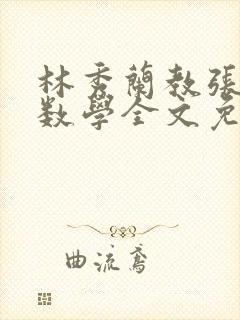 林秀蘭教張
数學全文免
曲流鳶